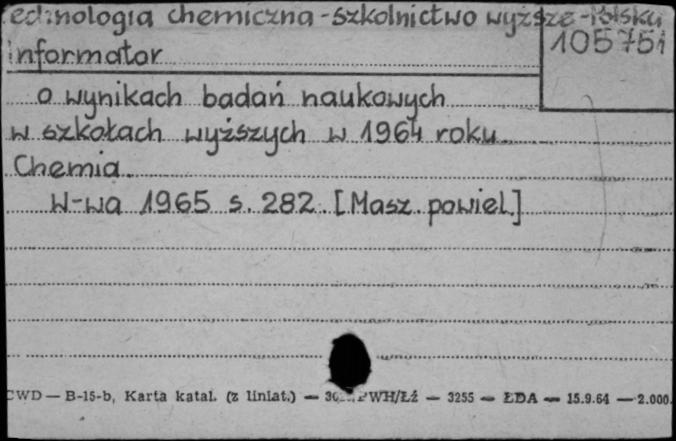 Technologia chemiczna - szkolnictwo wyższe - Polska
105751
Informator
o wynikach badań naukowych
w szkołach wyższych w 1964 roku
Chemia.
W-wa 1965 s. 282. [Masz. powiel.]
CWD — B-15-b, Karta katal. (z liniat.) — PWH/Łź — 3255 — ŁDA — 15.9.64 — 2.000.